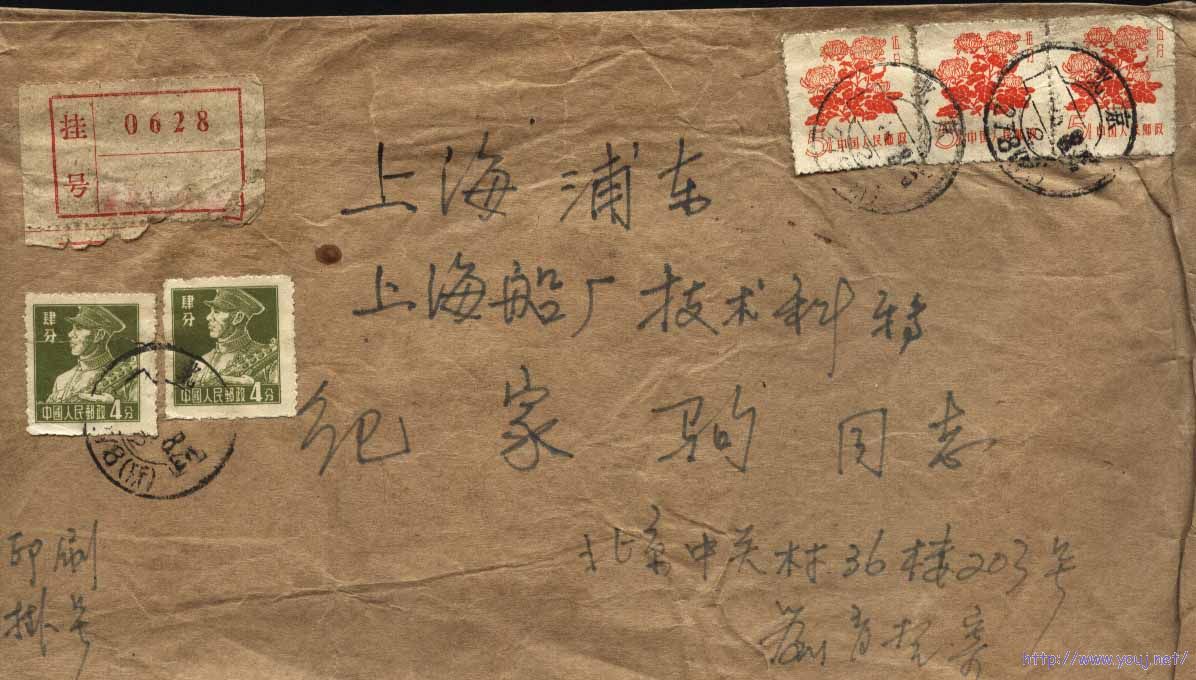 挂号 0628
5分 中国人民邮政
5分 中国人民邮政
5分 中国人民邮政
北京
278
上海浦东
上海船厂技术科转
肆分
中國人民郵政 4分
肆分
中國人民郵政 4分
纪家驹同志
印刷
掛号
北京中关村36楼203号
寄
http://www.youj.net/